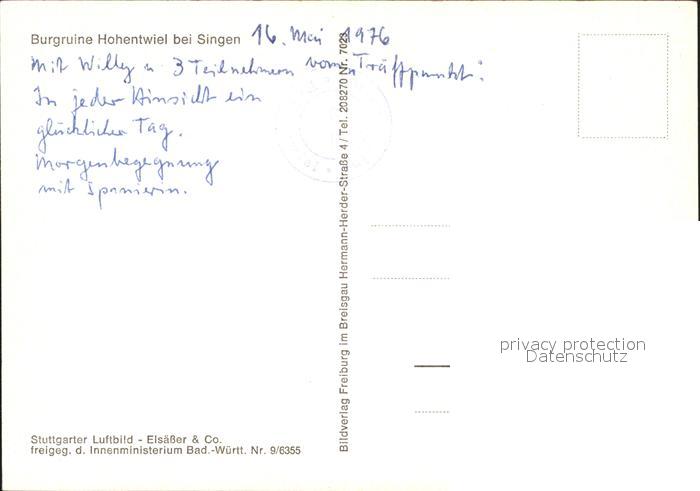 Burgruine Hohentwiel bei Singen 16. Mai 1976
Mit Willy u 3 Teilnehmern vom "Träffpunkt".
In jeder Hinsicht ein
glücklicher Tag.
Morgenbegegnung
mit Spanierin.
Bildverlag Freiburg im Breisgau Hermann-Herder-Straße 4 / Tel. 208270 Nr. 7023
privacy protection
Datenschutz
Stuttgarter Luftbild - Elsäßer & Co.
freigeg. d. Innenministerium Bad.-Württ. Nr. 9/6355